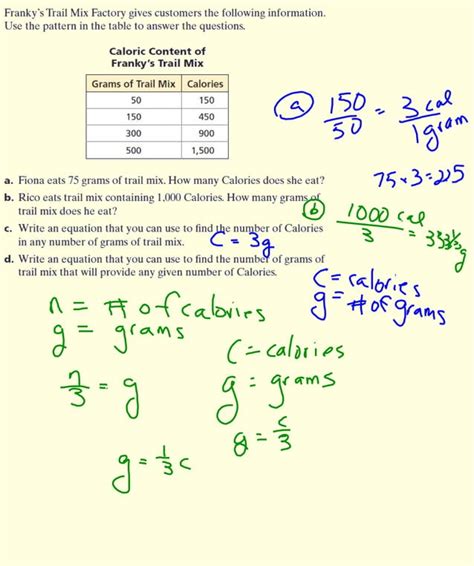 Franky's Trail Mix Factory gives customers the following information.
Use the pattern in the table to answer the questions.
Caloric Content of
Franky's Trail Mix
Grams of Trail Mix Calories
50 150
150 450
300 900
500 1,500
a 150/50 = 3 cal/1 gram
75 × 3 = 225
a. Fiona eats 75 grams of trail mix. How many Calories does she eat?
b. Rico eats trail mix containing 1,000 Calories. How many grams of
trail mix does he eat?
b 1000 cal/3 = 333 1/3 g
c. Write an equation that you can use to find the number of Calories
in any number of grams of trail mix.
C = 3g
d. Write an equation that you can use to find the number of grams of
trail mix that will provide any given number of Calories.
C = calories
g = # of grams
n = # of calories
g = grams
n/3 = g
C = calories
g = grams
g = c/3
g = 1/3 c